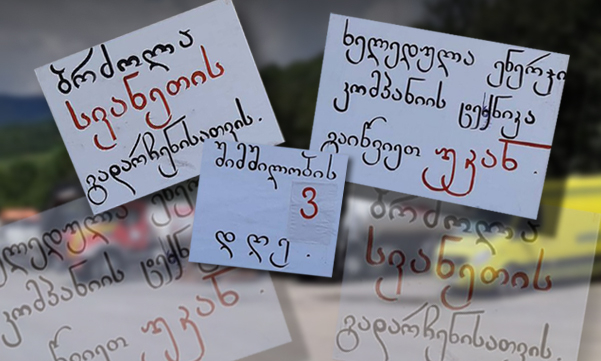 ბრძოლა
სვანეთის
გადარჩენისათვის.
ხელედულა ენერჯი
კომპანიის ტექნიკა
გაიწვიეთ უკან.
შიმშილობის
3
დღე.
ელედულა ენე
კომპანიის ტექნ
წვიეთ უკან.
ბრძოლა
სვანეთის
გადარჩენისათვის.